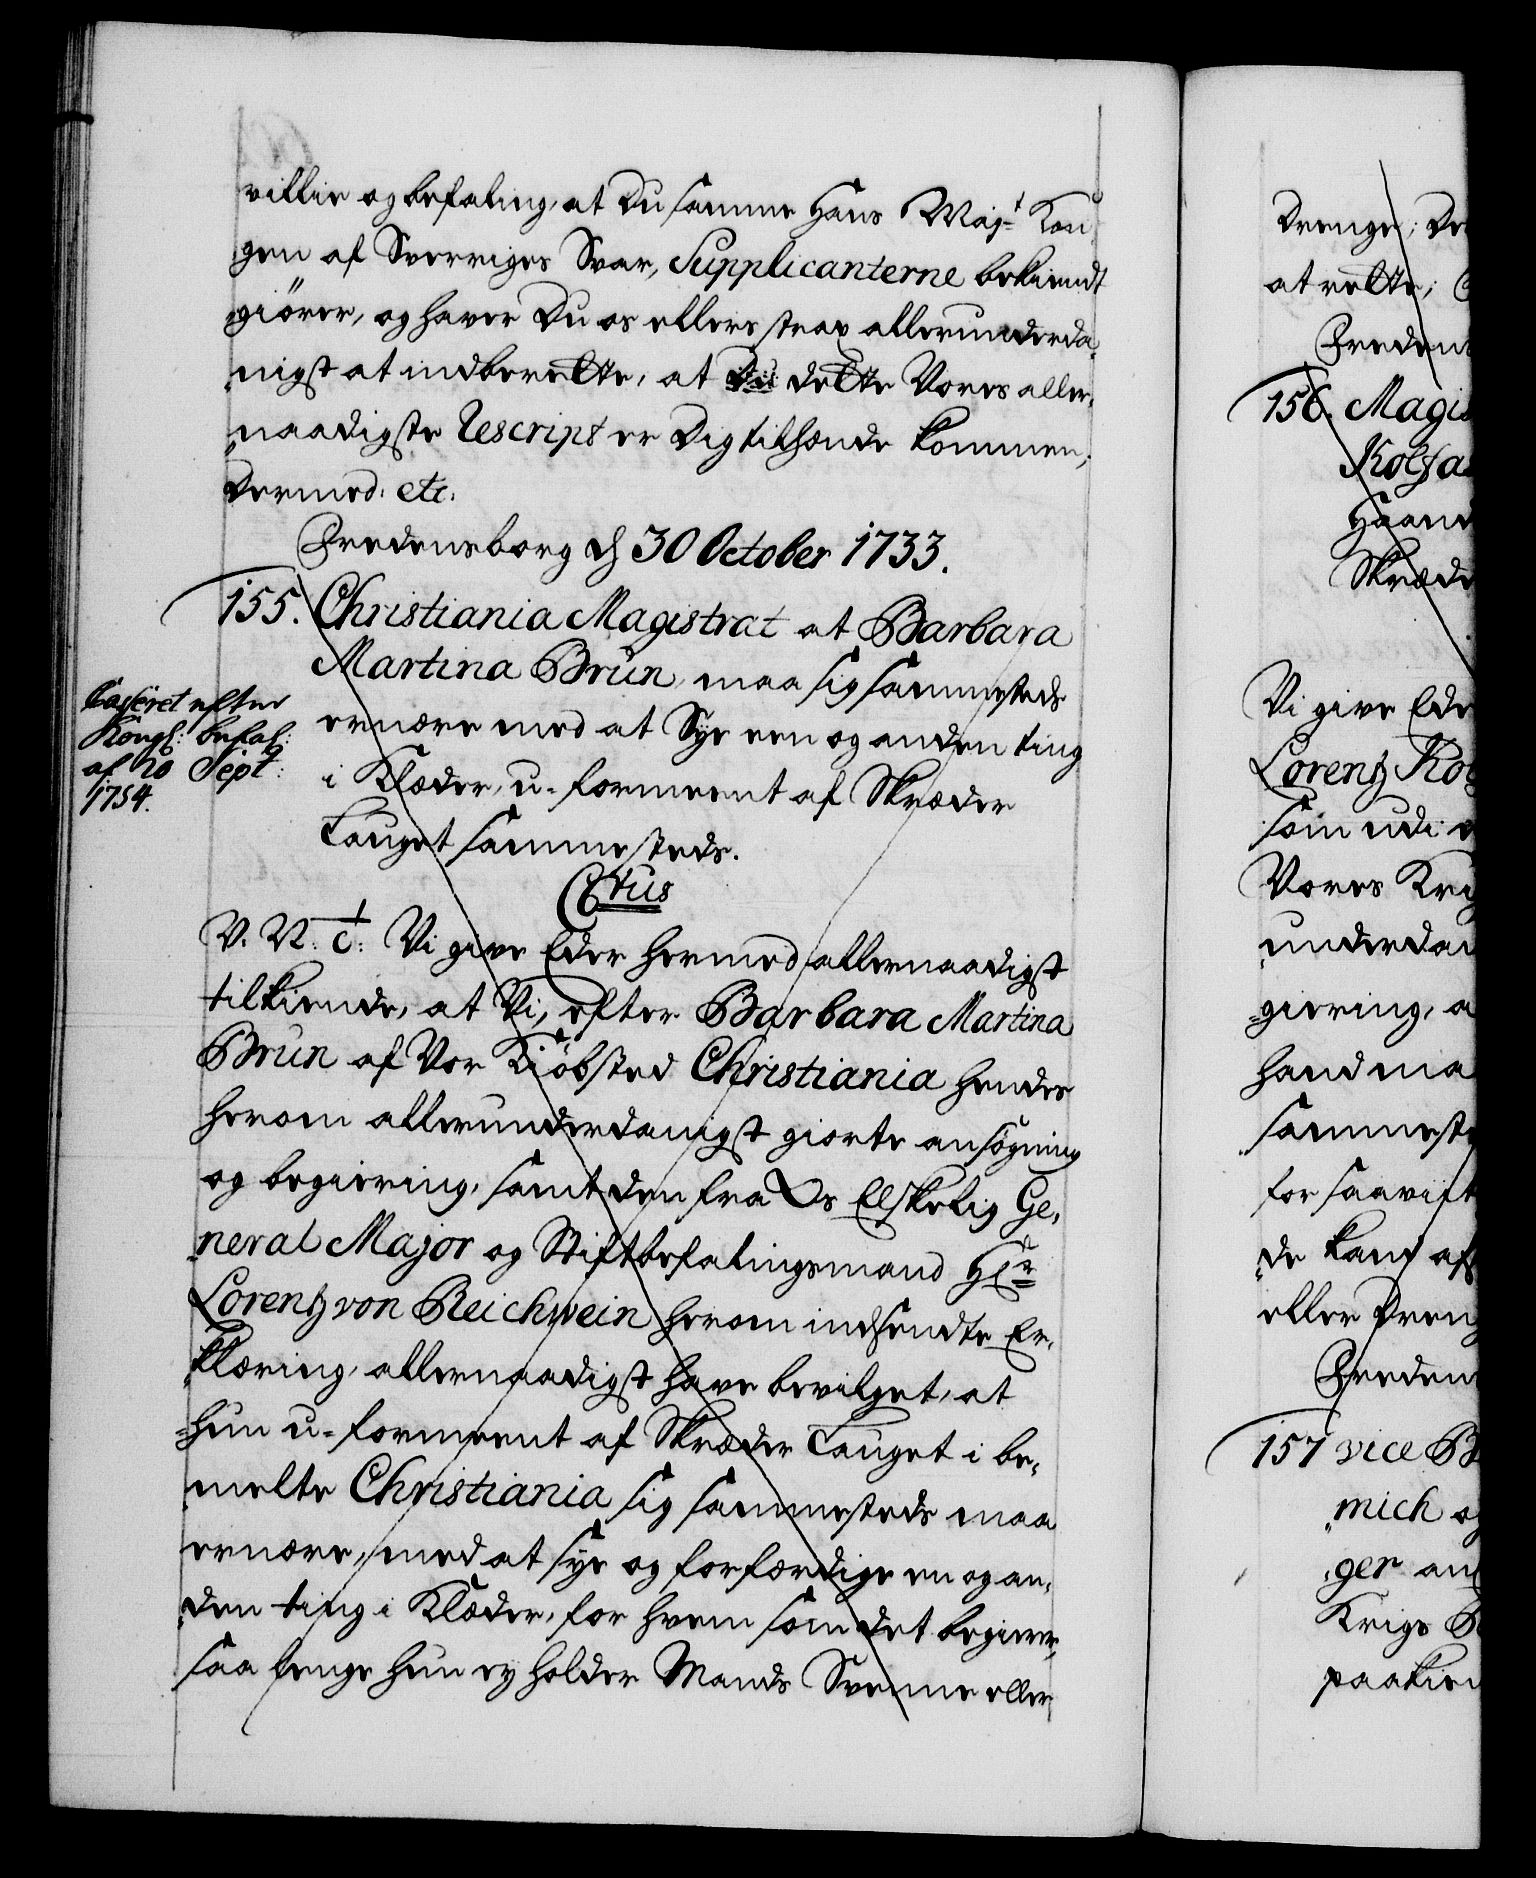 villie og befaling, at Du samme Hans Maj:t Kon¬
gen af Sverriges Svar, Supplicanterne bekiendt
giører, og haver Du os ellers strax allerunderda¬
nigst at indberette, at dette Vores aller¬
naadigste Rescript er Dig tilhænde kommen,
Dermed: etc:
Fredensborg d 30 October 1733.
155. Christiania Magistrat at Barbara
Martina Brun, maa sig sammesteds
ernære med at Sye een og anden ting
i Klæder, u-formeent af Skræder
Lauget sammesteds.
Casseret efter
Kongl: befal:
af 20 Sept:
1754.
C6tus
V. N. C: Vi give Eder hermed allernaadigst
tilkiende, at Vi, efter Barbara Martina
Brun af Vor Kiøbsted Christiania hendes
herom allerunderdanigst giorte ansøgning
og begiering, samt den fra Os Elskelig Ge¬
neral Major og Stiftbefalingsmand Hr
Lorentz von Reichwein herom indsendte Er¬
klæring, allernaadigst have bevilget, at
hun u-formeent af Skræder Lauget i be¬
melte Christiania sig sammesteds maa
ernære, med at sye og forfærdige en og an¬
den ting i Klæder, for hvem som det begierer,
saa længe hun ey holder Mands Svenne eller
Drenge; De
at rette;
Freden
156. Magis
Kolfa
Haand
Skræde
Vi give Ede
Lorentz Ko
som udi
Vores Krig
underdan
giering, a
hand maa
sammeste
for saavit
de kand af
eller Dreng
Freden
157 vice B
mich og
ger an
Krigs
paakien